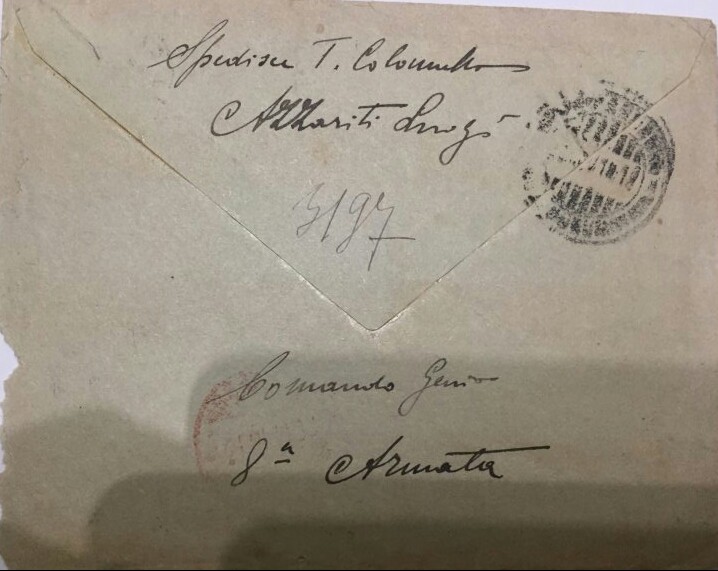 Spedisce T. Colonnello
Azzariti Luigi
3197
Comando Genio
8ª Armata